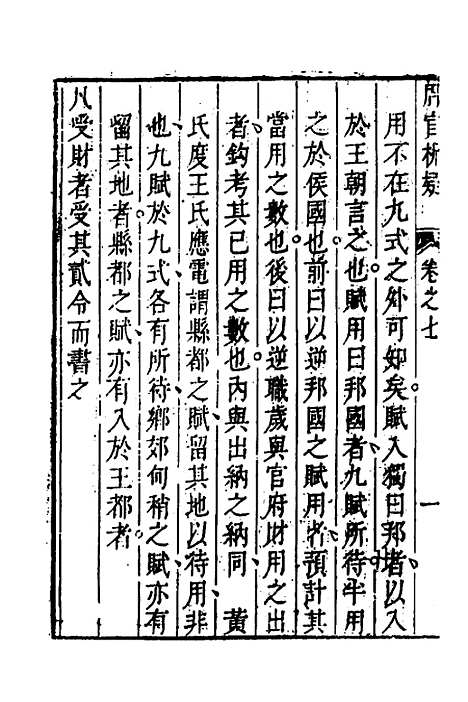 周官析疑 卷之七 一
用不在九式之外可知矣賦入獨曰邦者以入
於王朝言之也賦用曰邦國者九賦所待半用
之於侯國也前曰以逆邦國之賦用者預計其
當用之數也後曰以逆職歲與官府財用之出
者鈎考其已用之數也内與出納之納同 黃
氏度王氏應電謂縣都之賦留其地以待用非
也九賦於九式各有所待鄉郊甸稍之賦亦有
留其地者縣都之賦亦有入於王都者
凡受財者受其貳令而書之